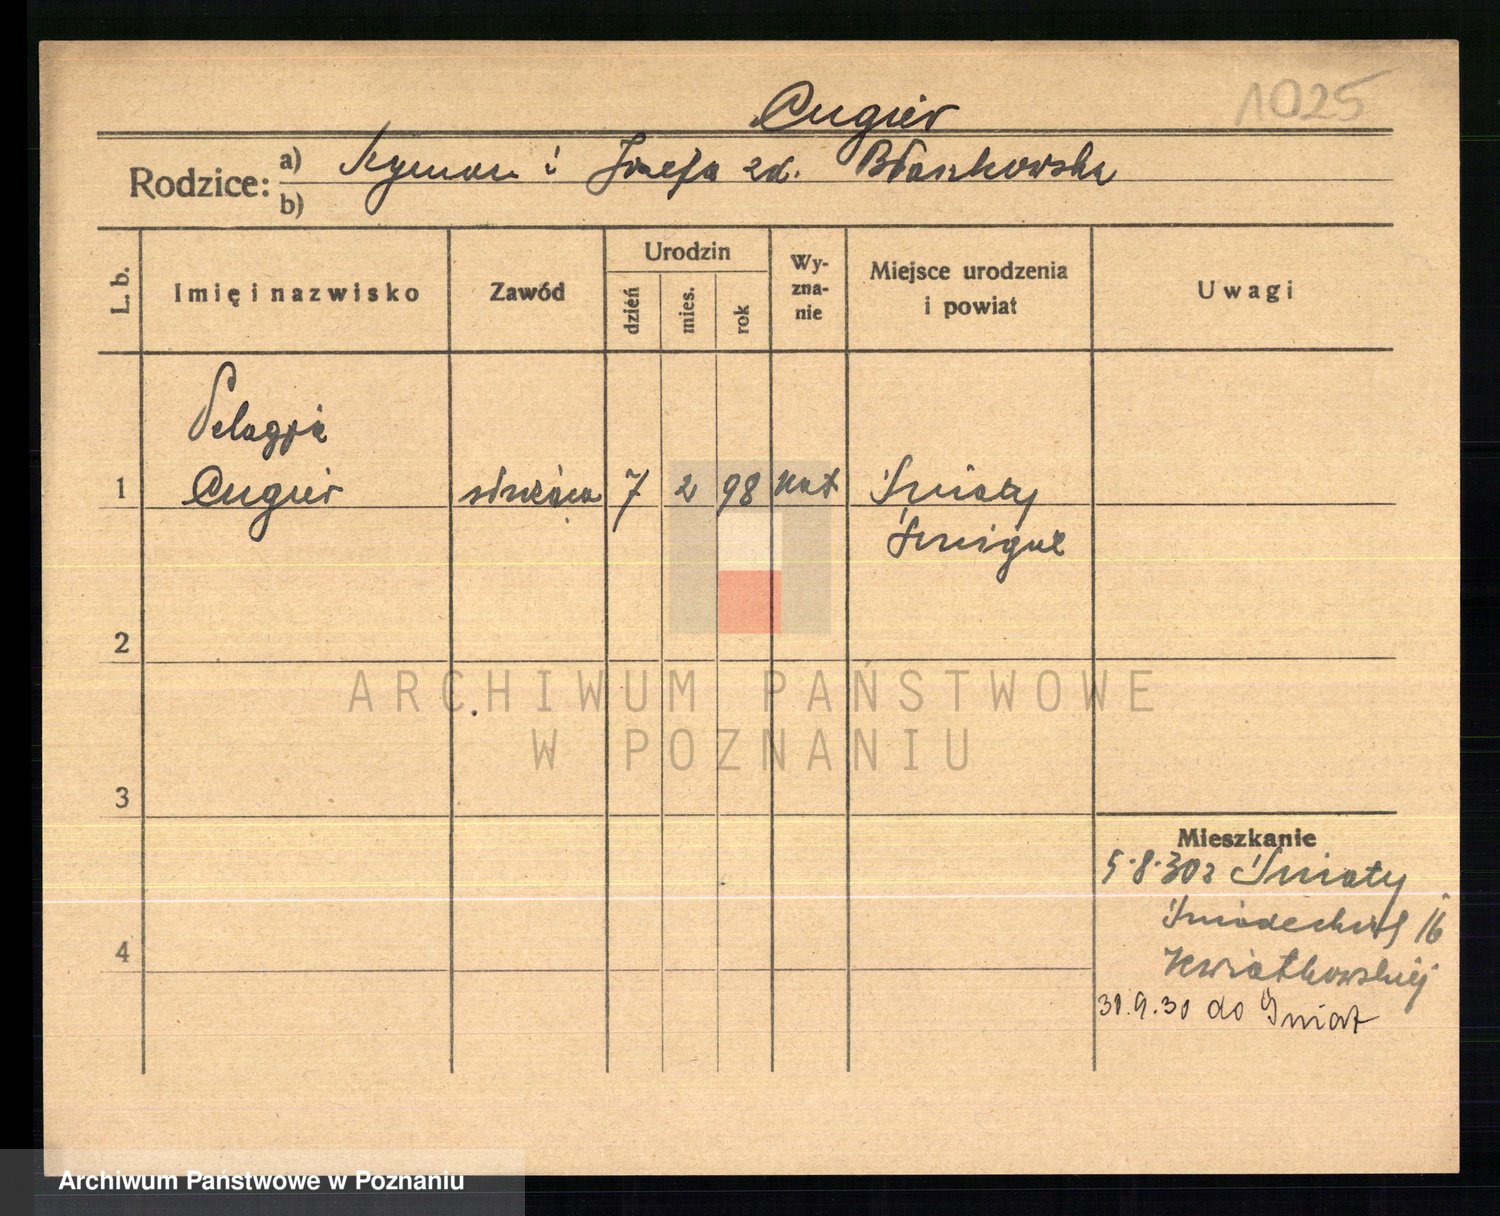 1025
Cugier
Rodzice: a) Szymon i Józefa zd. Błaszkowska
b)
L. b.
Imię i nazwisko
Zawód
Urodzin
dzień
mies.
rok
Wy-
zna-
nie
Miejsce urodzenia
i powiat
Uwagi
Pelagja
1 Cugier służąca 7 2 98 kat Śniaty
Śmigiel
2
ARCHIWUM PAŃSTWOWE
W POZNANIU
3
Mieszkanie
5.8.30 z Śniaty
Śniadeckich 16
4
Kwiatkowskiej
30.9.30 do Śniat
Archiwum Państwowe w Poznaniu